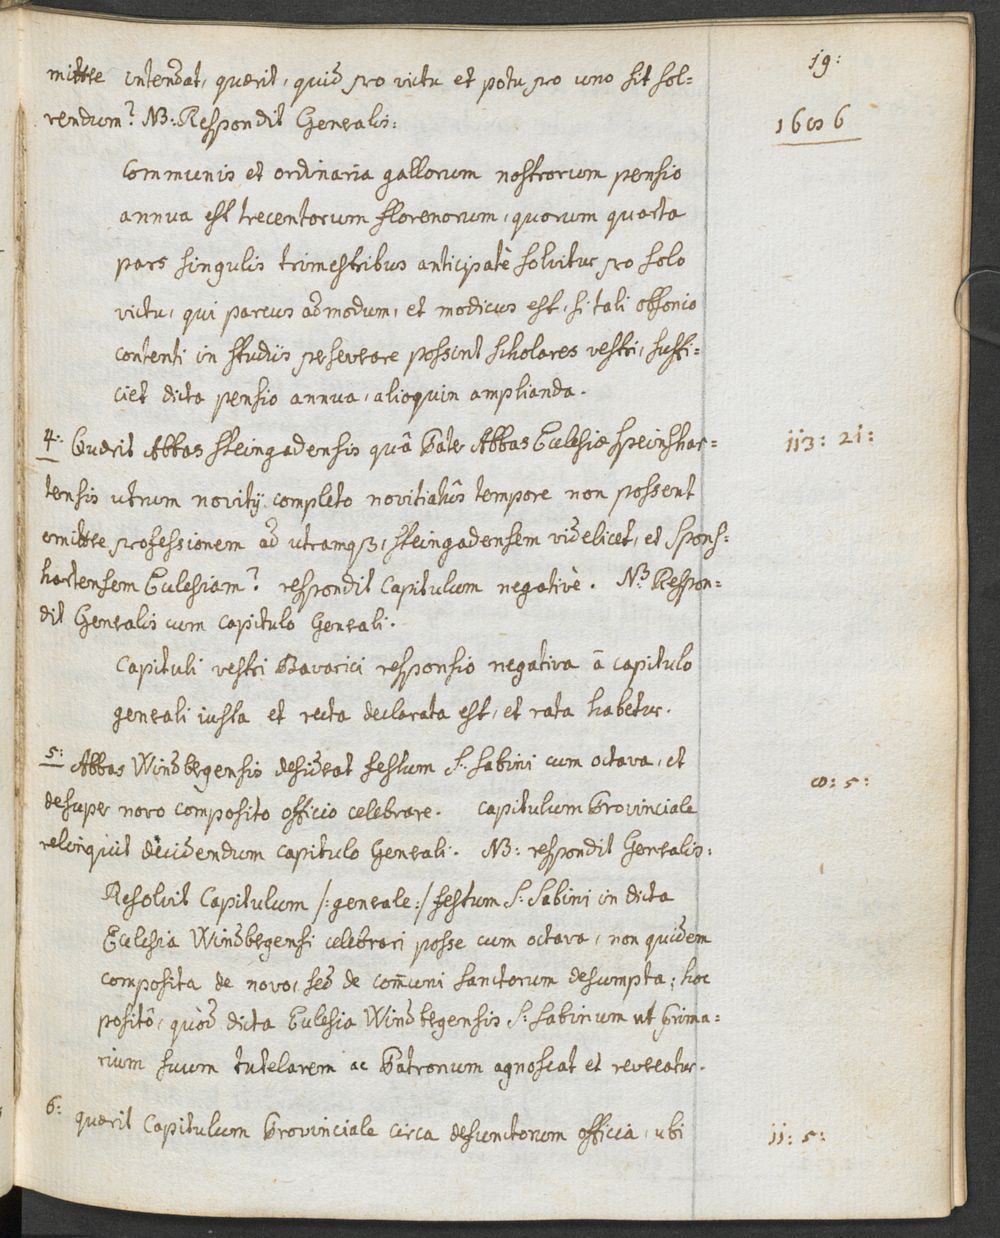 19:
mittere intendat, quærit, quid pro victu et potu pro uno sit sol=
vendum? NB: Respondit Generalis:
1606
Communis et ordinaria gallorum nostrorum pensio
annua est trecentorum florenorum, quorum quarta
pars singulis trimestribus anticipatè solvitur pro solo
victu, qui parcus admodum, et modicus est, si tali obsonio
contenti in studijs perseverare possint scholares vestri, suffi=
ciet dicta pensio annua, alioquin amplianda.
4: Quærit Abbas Steingadensis quâ Pater Abbas Ecclesiæ Speinshar=
113: 21:
tensis utrum novitij completo novitiatûs tempore non possent
emittere professionem ad utramqß, Steingadensem videlicet, et Spons=
hartensem Ecclesiam? respondit Capitulum negativè. NB Respon=
dit Generalis cum capitulo Generali.
Capituli vestri Bavarici responsio negativa â capitulo
generali iusta et recta declarata est, et rata habetur.
5: Abbas Windbergensis desiderat festum S: Sabini cum octava, et
desuper novo composito officio celebrare. Capitulum Provinciale
relinquit decidendum capitulo Generali. NB: respondit Generalis:
Resolvit Capitulum /: generale :/ festum S: Sabini in dicta
Ecclesia Windbergensi celebrari posse cum octava, non quidem
composita de novo, sed de com̄uni Sanctorum desumpta; hoc
positô, quòd dicta Ecclesia Windbergensis S: Sabinum ut Prima=
rium suum tutelarem ac Patronum agnoscat et revereatur.
6: quærit Capitulum Provinciale circa defunctorum officia, ubi
11: 5: